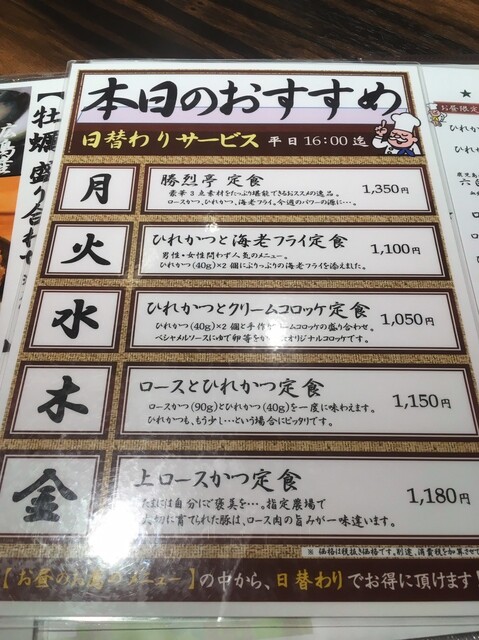 本日のおすすめ
日替わりサービス 平日 16:00 迄
月
勝烈亭 定食
豪華3点素材をたっぷり堪能できるおススメの逸品。
ロースかつ、ひれかつ、海老フライ。今週のパワーの源に…。
1,350円
火
ひれかつと海老フライ定食
男性・女性問わず人気のメニュー。
ひれかつ(40g)×2 個にぷりっぷりの海老フライを添えました。
1,100円
水
ひれかつとクリームコロッケ定食
ひれかつ(40g)×2 個と手作り ームコロッケの盛り合わせ。
ベシャメルソースにゆで卵等をか オリジナルコロッケです。
1,050円
木
ロースとひれかつ定食
ロースかつ(90g)とひれかつ(40g)を一度に味わえます。
ひれかつも、もう少し…という場合にピッタリです。
1,150円
金
上ロースかつ定食
たまには自分にご褒美を…。指定農場で
大切に育てられた豚は、ロース肉の旨みが一味違います。
1,180円
※ 価格は税抜き価格です。別途、消費税を加算させて
【お昼のお薦めメニュー】の中から、日替わりでお得に頂けます!
【牡蠣盛り合わせ
広島産
★
お昼限定
ひれかつ
ひれか